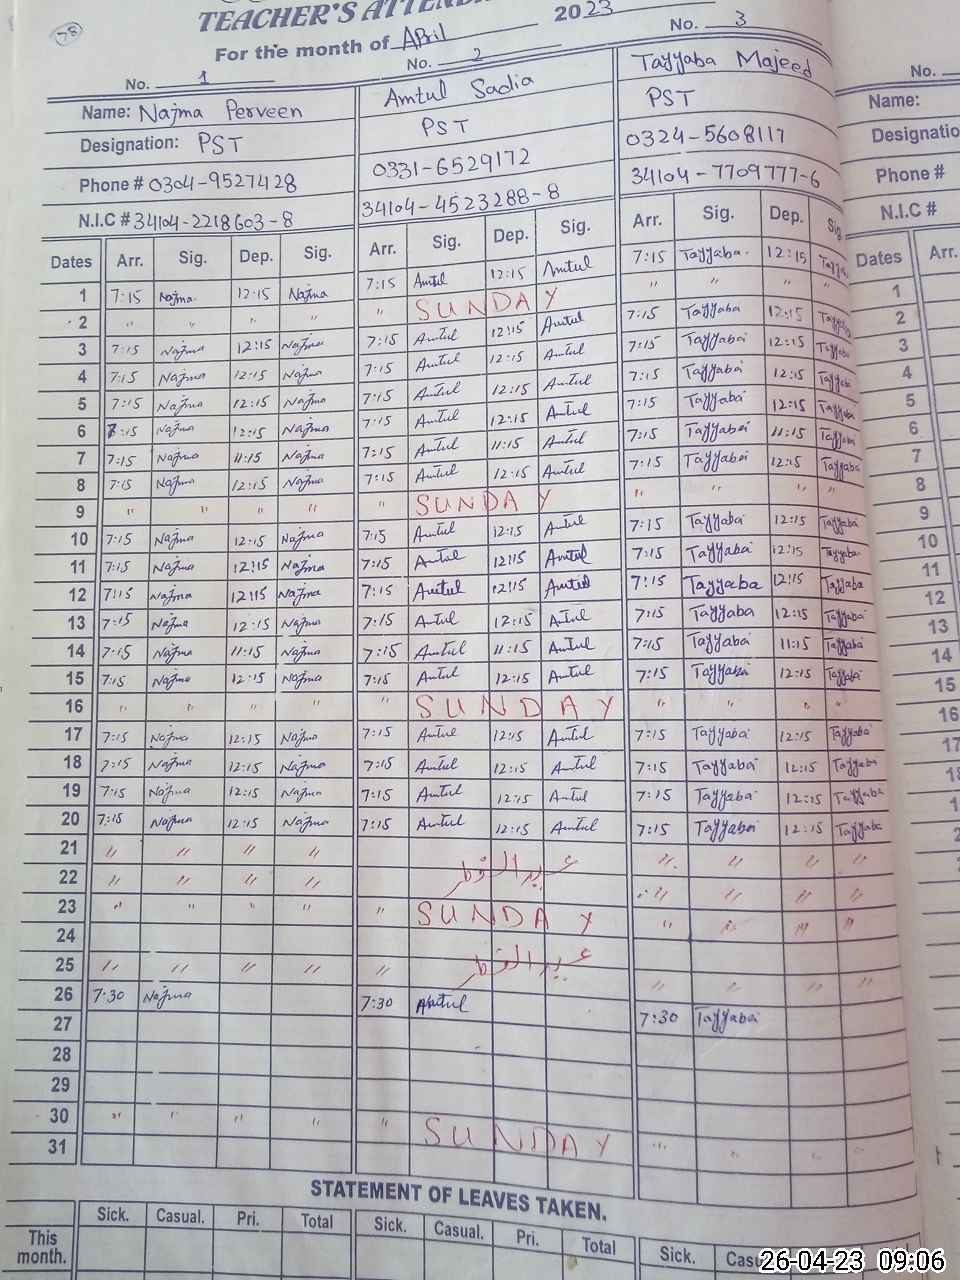 78
TEACHER'S
For the month of April 2023
No. 1 No. 2 No. 3 No.
Name: Najma Perveen Amtul Sadia Tayyaba Majeed Name:
Designation: PST PST PST
Phone # 0304-9527428 0331-6529172 0324-5608117 Phone #
N.I.C # 34104-2218603-8 34104-4523288-8 34104-7709777-6 N.I.C #
Dates Arr. Sig. Dep. Sig. Arr. Sig. Dep. Sig. Arr. Sig. Dep. Sig Dates Arr.
1 7:15 Najma 12:15 Najma 7:15 Amtul 12:15 Amtul 7:15 Tayyaba 12:15 Tayyaba 1
2 " " " " " SUNDAY " " " " 2
3 7:15 Najma 12:15 Najma 7:15 Amtul 12:15 Amtul 7:15 Tayyaba 12:15 Tayyaba 3
4 7:15 Najma 12:15 Najma 7:15 Amtul 12:15 Amtul 7:15 Tayyaba 12:15 Tayyaba 4
5 7:15 Najma 12:15 Najma 7:15 Amtul 12:15 Amtul 7:15 Tayyaba 12:15 Tayyaba 5
6 7:15 Najma 12:15 Najma 7:15 Amtul 12:15 Amtul 7:15 Tayyaba 12:15 Tayyaba 6
7 7:15 Najma 11:15 Najma 7:15 Amtul 11:15 Amtul 7:15 Tayyaba 11:15 Tayyaba 7
8 7:15 Najma 12:15 Najma 7:15 Amtul 12:15 Amtul 7:15 Tayyaba 12:15 Tayyaba 8
9 " " " " " SUNDAY " " " " 9
10 7:15 Najma 12:15 Najma 7:15 Amtul 12:15 Amtul 7:15 Tayyaba 12:15 Tayyaba 10
11 7:15 Najma 12:15 Najma 7:15 Amtul 12:15 Amtul 7:15 Tayyaba 12:15 Tayyaba 11
12 7:15 Najma 12:15 Najma 7:15 Amtul 12:15 Amtul 7:15 Tayyaba 12:15 Tayyaba 12
13 7:15 Najma 12:15 Najma 7:15 Amtul 12:15 Amtul 7:15 Tayyaba 12:15 Tayyaba 13
14 7:15 Najma 11:15 Najma 7:15 Amtul 11:15 Amtul 7:15 Tayyaba 11:15 Tayyaba 14
15 7:15 Najma 12:15 Najma 7:15 Amtul 12:15 Amtul 7:15 Tayyaba 12:15 Tayyaba 15
16 " " " " " SUNDAY " " " " 16
17 7:15 Najma 12:15 Najma 7:15 Amtul 12:15 Amtul 7:15 Tayyaba 12:15 Tayyaba 17
18 7:15 Najma 12:15 Najma 7:15 Amtul 12:15 Amtul 7:15 Tayyaba 12:15 Tayyaba
19 7:15 Najma 12:15 Najma 7:15 Amtul 12:15 Amtul 7:15 Tayyaba 12:15 Tayyaba
20 7:15 Najma 12:15 Najma 7:15 Amtul 12:15 Amtul 7:15 Tayyaba 12:15 Tayyaba
21 " " " " عید الفطر " " " "
22 " " " " " " " "
23 " " " " " SUNDAY " " " "
24
25 " " " " " عید الفطر " " " "
26 7:30 Najma 7:30 Amtul 7:30 Tayyaba
27
28
29
30 " " " " " SUNDAY " " " "
31
STATEMENT OF LEAVES TAKEN.
Sick. Casual. Pri. Total Sick. Casual. Pri. Total Sick.
This month.
26-04-23 09:06